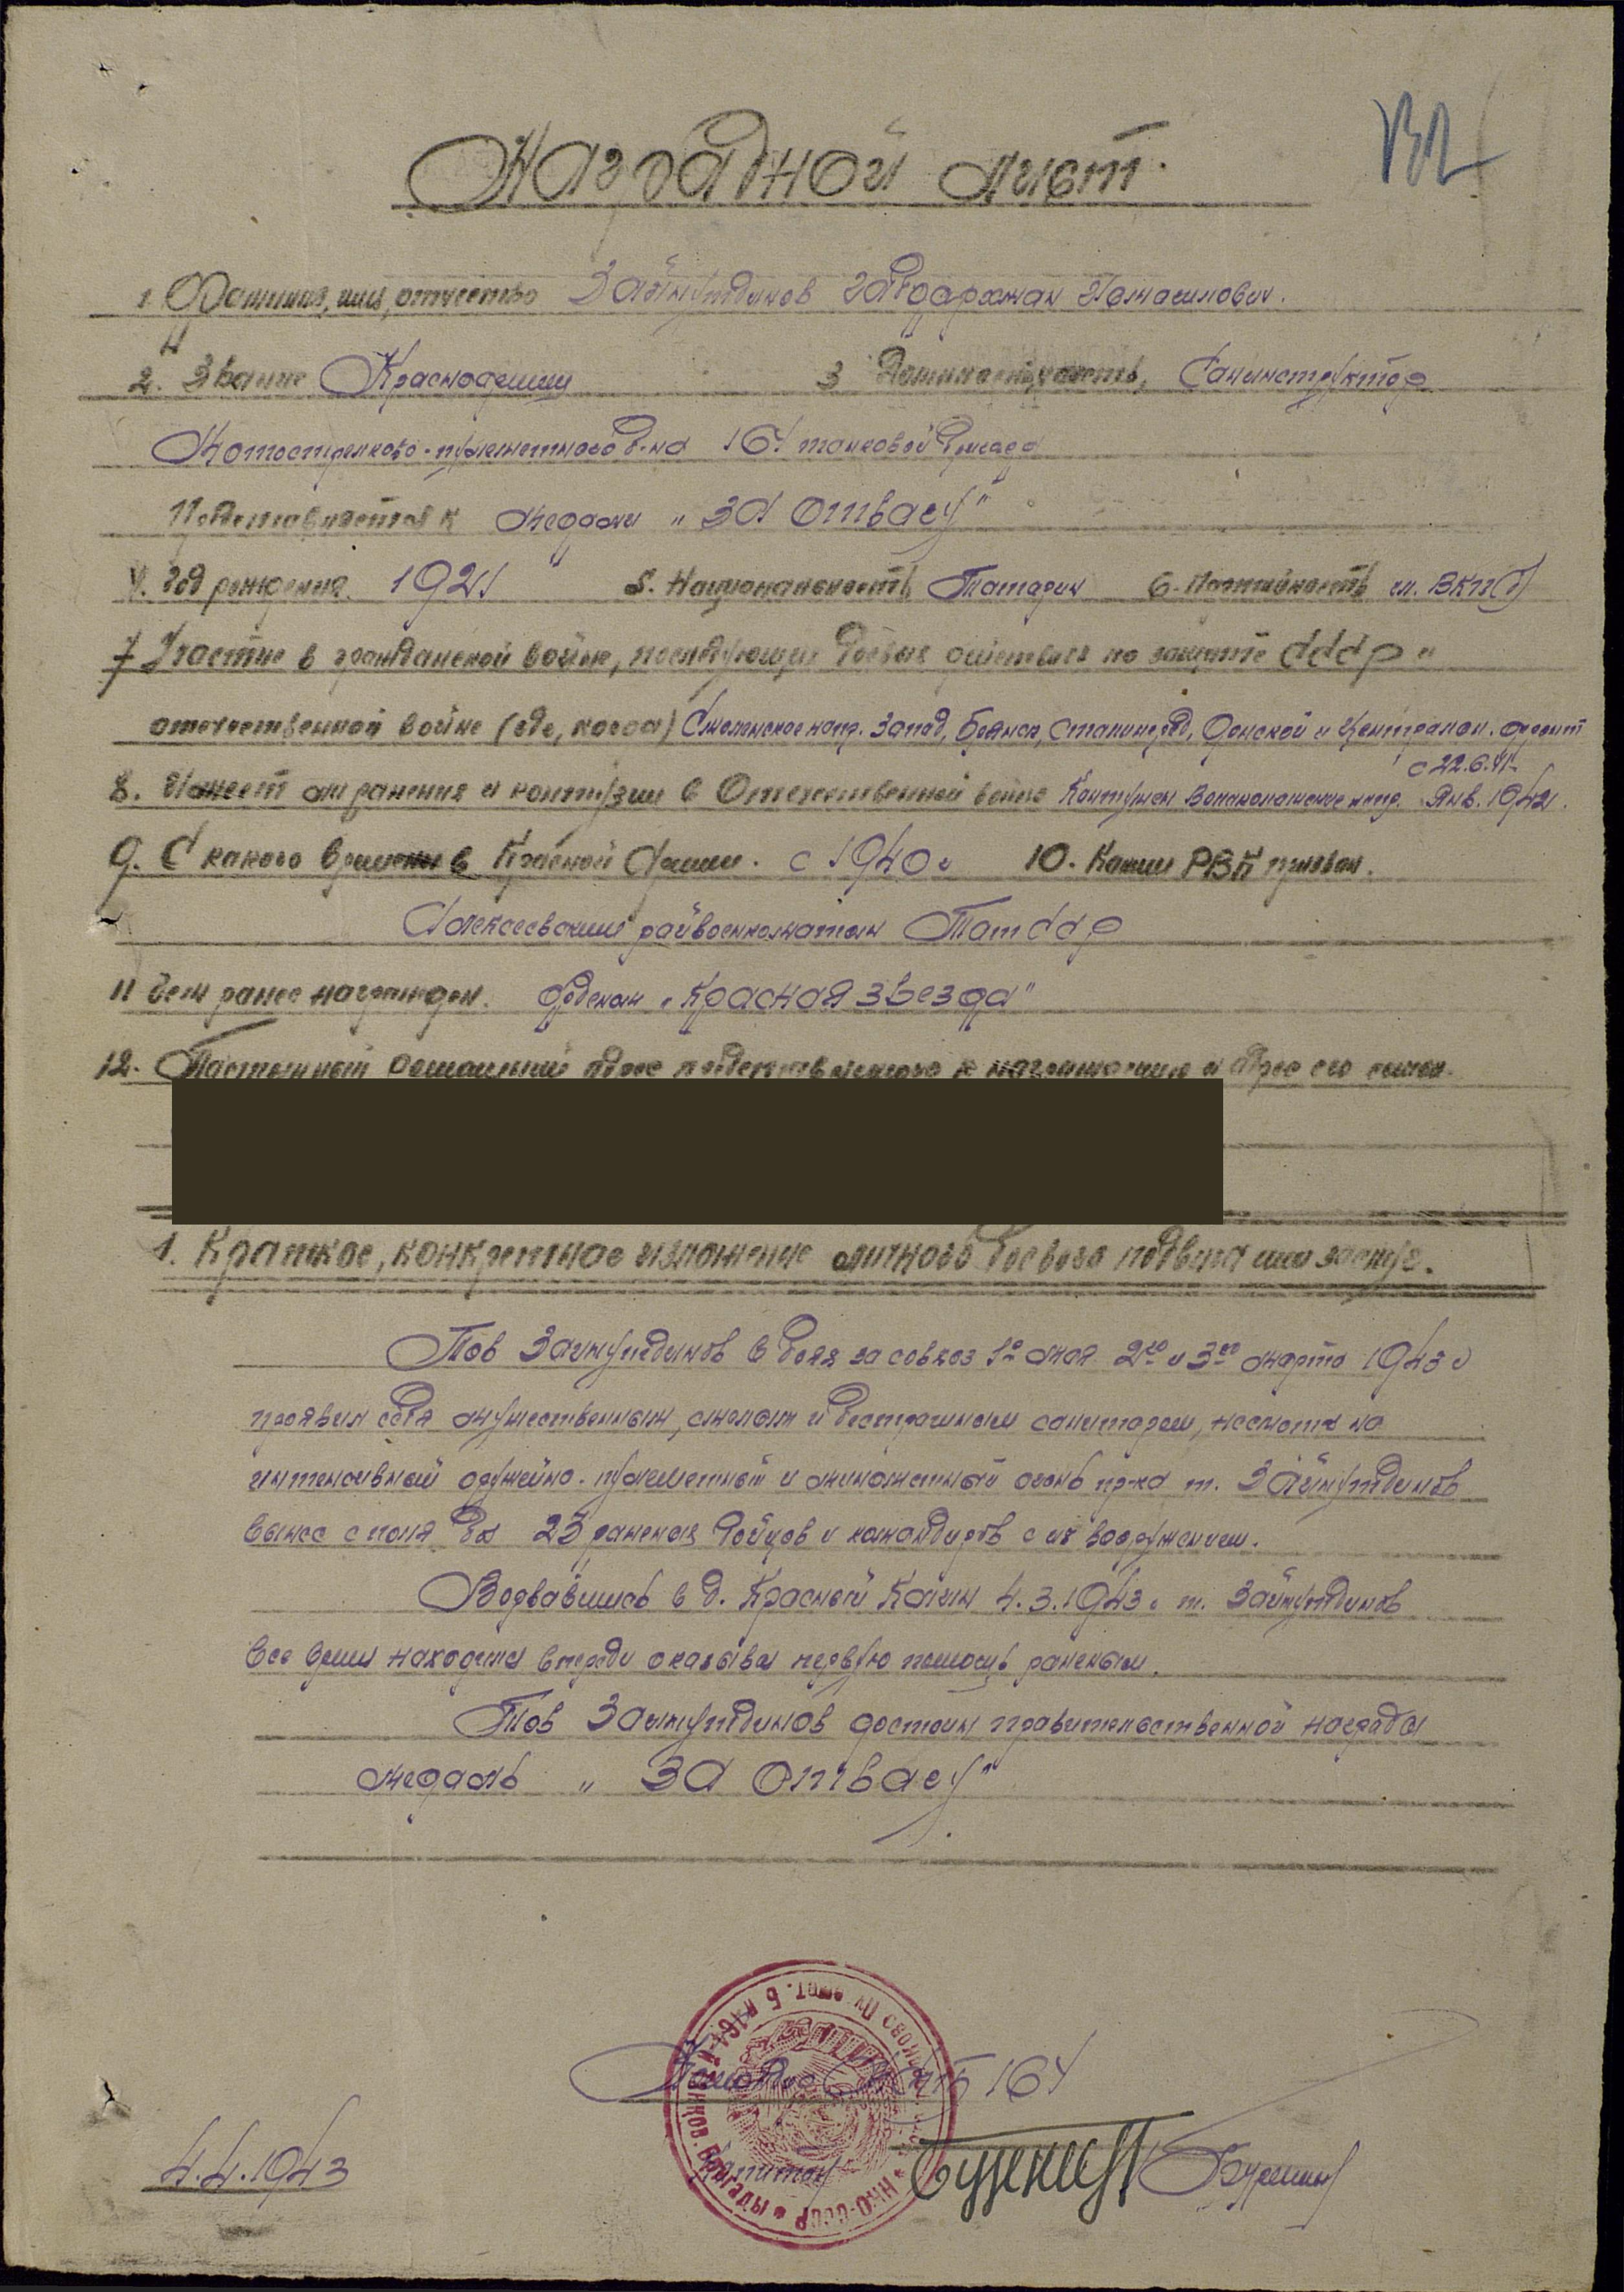 132
Наградной лист.
1. Фамилия, имя, отчество Зайнутдинов Габдархман Исмагилович.
2. Звание Красноармеец 3 Должность, часть, Санинструктор
Мотострелково-пулеметного б-на 164 танковой бригады
Представляется к медали „За отвагу"
4. Год рождения. 1921 5. Национальность Татарин 6. Партийность чл. ВКП(б)
7 Участие в гражданской войне, последующих боевых действиях по защите СССР и
отечественной войне (где, когда) Смоленское напр. Запад, Брянск, Сталинград, Донской и Централь. фронт
с 22.6.41
8. Имеет ли ранения и контузии в Отечественной войне Контужен Волоколамское напр. Янв. 1942г.
9. С какого времени в Красной Армии. с 1940г 10. Каким РВК призван.
Алексеевским райвоенкоматом ТатССР
11 Чем ранее награжден. Орденом „Красная звезда"
12. Постоянный домашний адрес представляемого к награждению и адрес его семьи.
1. Краткое, конкретное изложение личного боевого подвига или заслуг.
Тов Зайнутдинов в боях за совхоз 1о мая 2го и 3го марта 1943г
проявил себя мужественным, смелым и бесстрашным санитаром, несмотря на
интенсивный оружейно-пулеметный и минометный огонь пр-ка т. Зайнутдинов
вынес с поля боя 23 раненых бойцов и командиров с их вооружением.
Ворвавшись в д. Красный 4.3.1943г т. Зайнутдинов
все время находился впереди оказывал первую помощь раненым.
Тов Зайнутдинов достоин правительственной награды
медаль „За отвагу"
164
4.4.1943 Капитан